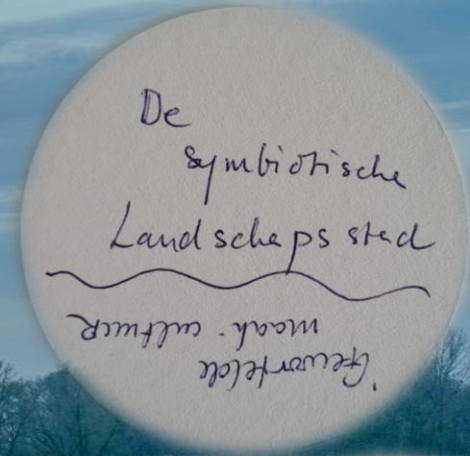 De
symbiotische
Landschaps stad
'Gewortelde
maak. cultuur